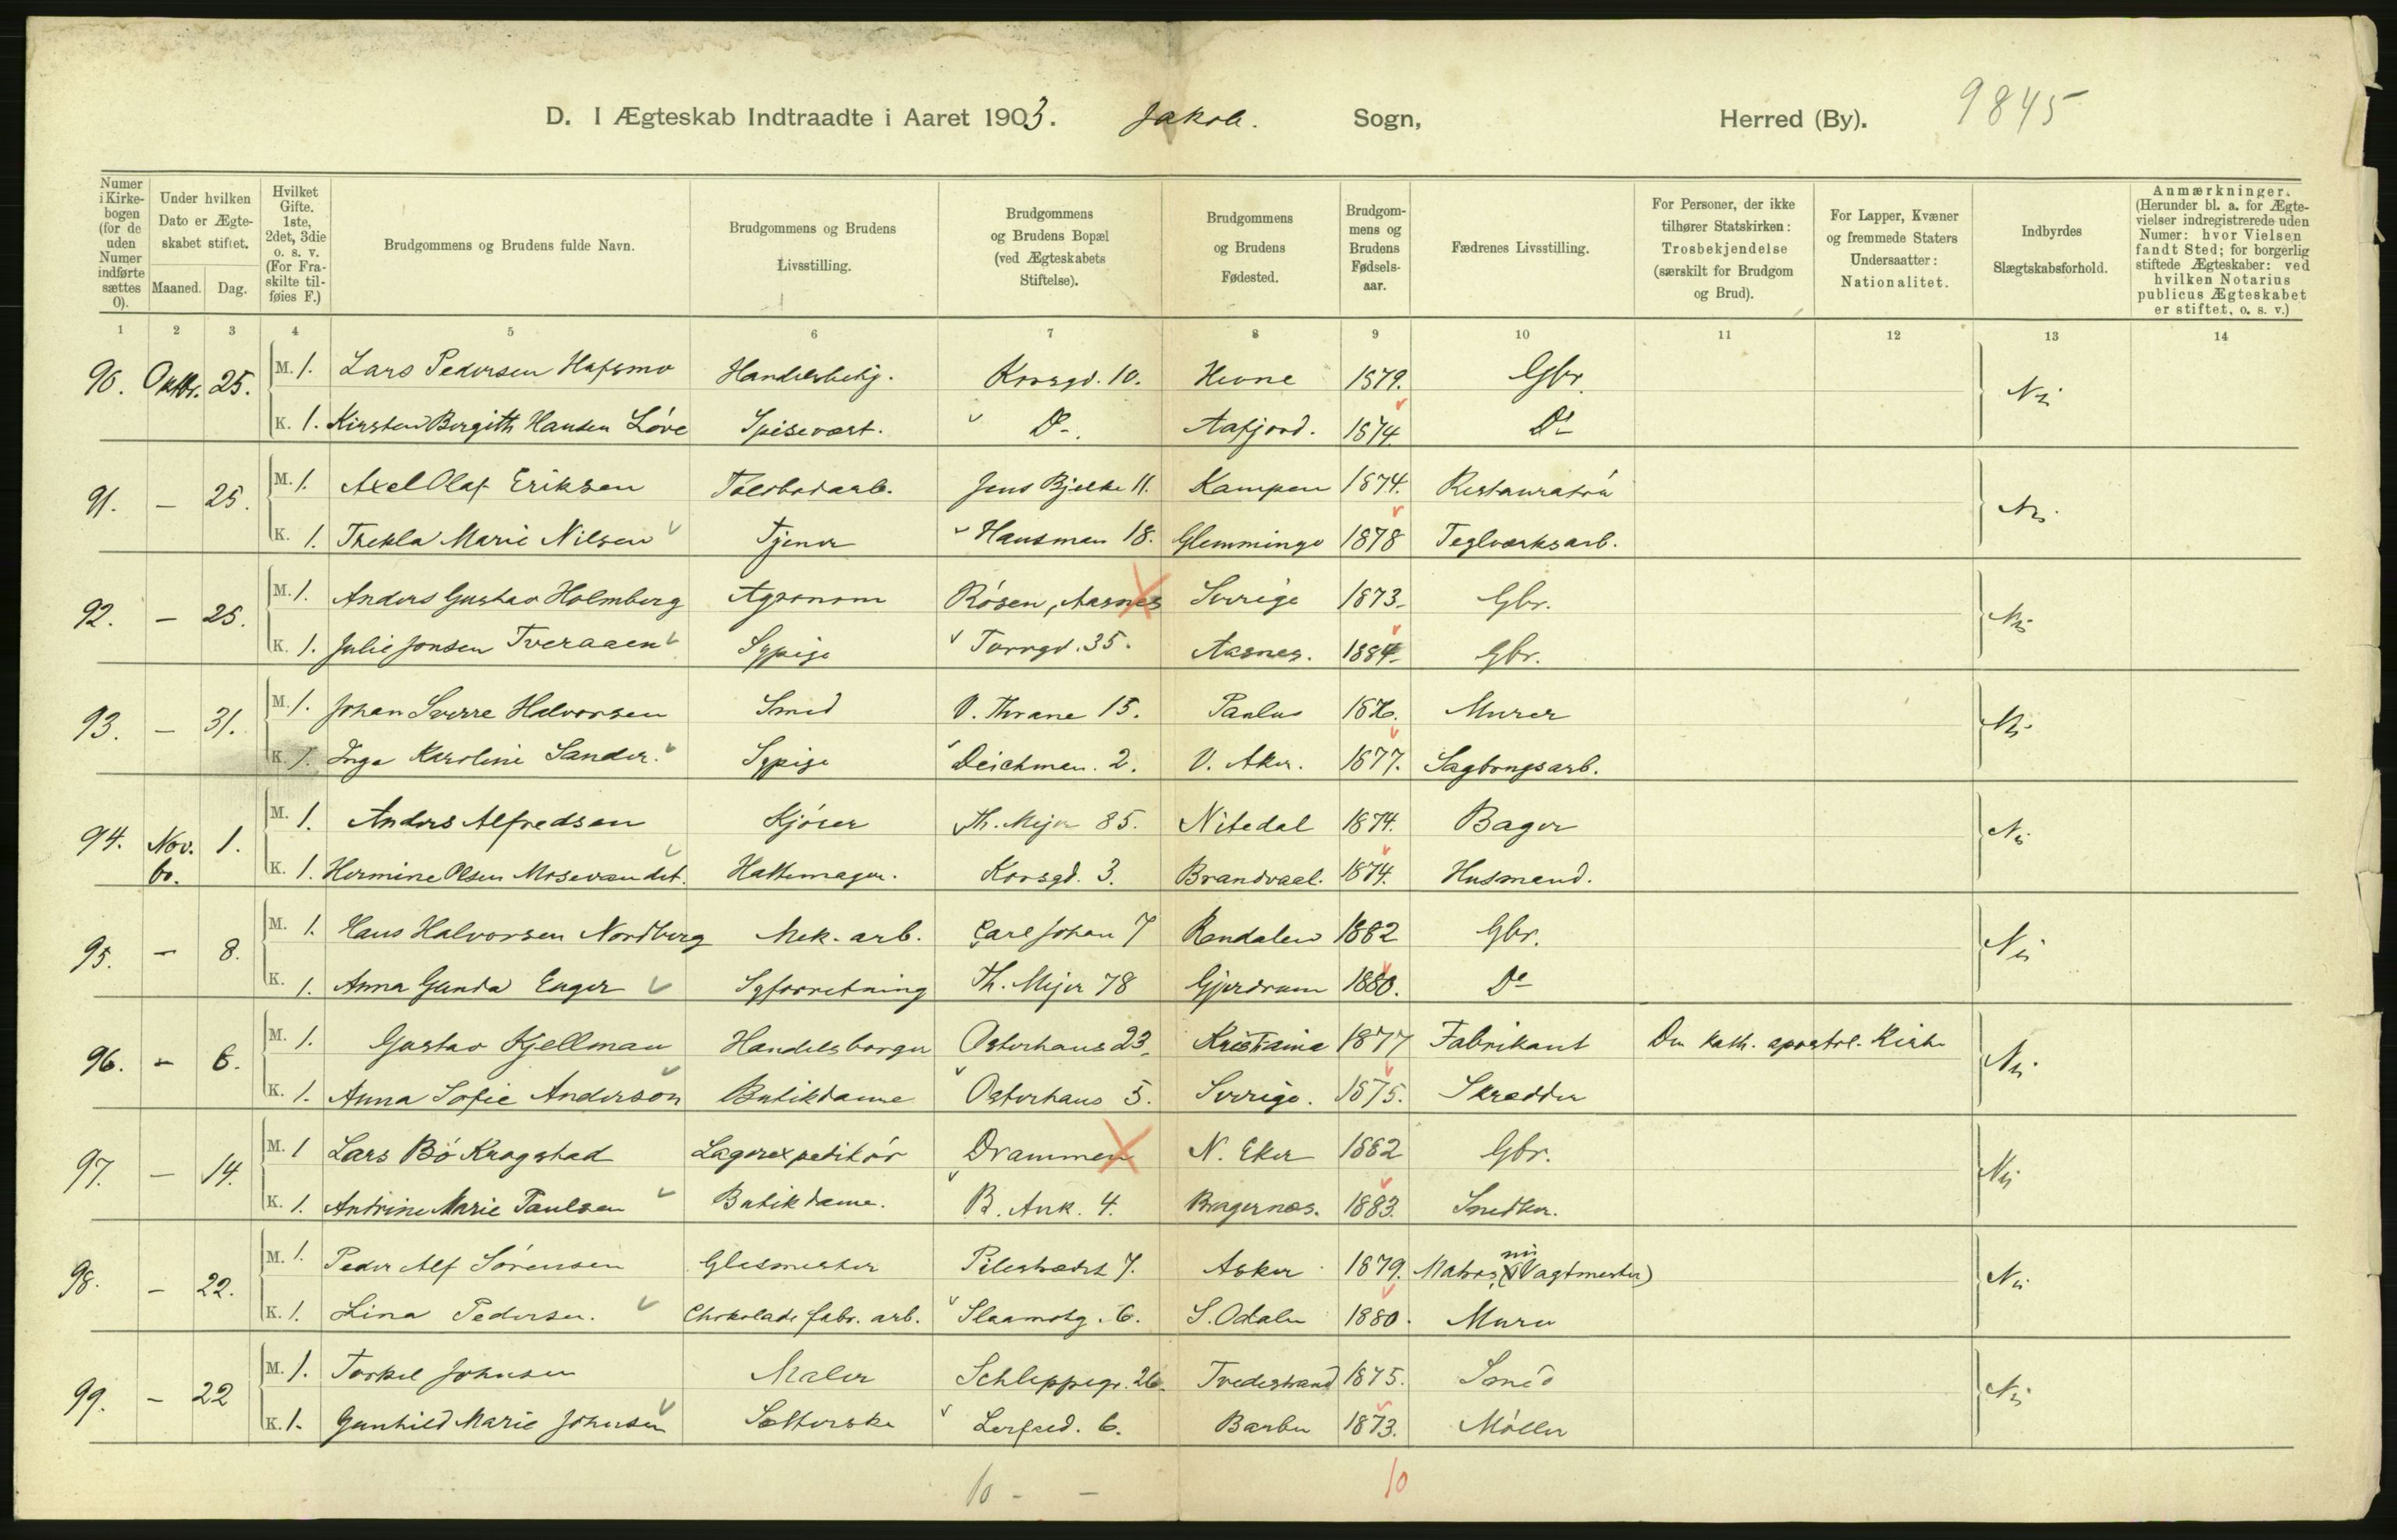 D. I Ægteskab Indtraadte i Aaret 1903. Jakob. Sogn, Herred (By). 9845
Numer i Kirkebogen (for de uden Numer indførte sættes 0). Under hvilken Dato er Ægteskabet stiftet. Maaned. Dag. Hvilket Gifte. 1ste, 2det, 3die o. s. v. (For Fraskilte tilføies F.) Brudgommens og Brudens fulde Navn. Brudgommens og Brudens Livsstilling. Brudgommens og Brudens Bopæl (ved Ægteskabets Stiftelse). Brudgommens og Brudens Fødested. Brudgommens og Brudens Fødselsaar. Fædrenes Livsstilling. For Personer, der ikke tilhører Statskirken: Trosbekjendelse (særskilt for Brudgom og Brud). For Lapper, Kvæner og fremmede Staters Undersaatter: Nationalitet. Indbyrdes Slægtskabsforhold. Anmærkninger. (Herunder bl. a. for Ægtevielser indregistrerede uden Numer: hvor Vielsen fandt Sted; for borgerlig stiftede Ægteskaber: ved hvilken Notarius publicus Ægteskabet er stiftet, o. s. v.)
1 2 3 4 5 6 7 8 9 10 11 12 13 14
90. Oktbr. 25. M. 1. Lars Pedersen Hafsmo Handelsbetj. Korsgd. 10. Hevne 1879. Gbr. Nei
K. 1. Kirsten Bergith Hansen Löve Spisevært. Do. Aafjord. 1874 Do
91. — 25. M. 1. Axel Olaf Eriksen Toldbodarb. Jens Bjelke 11. Kampen 1874. Restauratör Nei
K. 1. Thekla Marie Nilsen Tjener Hausman 18. Glemminge 1878 Teglværksarb.
92. — 25. M. 1. Anders Gustav Holmberg Agronom Rösen, Aasnes Sverige 1873. Gbr. Nei
K. 1. Julie Jonsen Tveraaen Sypige Torvgd. 35. Aasnes. 1884 Gbr.
93. — 31. M. 1. Johan Sverre Halvorsen Smed V. Thrane 15. Paulus 1876. Murer Nei
K. 1. Inga Karoline Sander. Sypige Deichman. 2. V. Aker. 1877. Sagbrugsarb.
94. Nov.br. 1. M. 1. Anders Alfredsen Kjörer Th. Mejer 85. Nitedal 1874. Bager Nei
K. 1. Hermine Olsen Mosevandet. Hattemager. Korsgd. 3. Brandvael. 1874. Husmand.
95. — 8. M. 1. Hans Halvorsen Nordberg Mek. arb. Carl Johan 7 Rendalen 1882 Gbr. Nei
K. 1. Anna Gunda Enger Syforretning Th. Mejer 78 Gjerdrum 1880. Do
96. — 6. M. 1. Gustav Kjellman Handelsborger Osterhaus 23. Kristiania 1877 Fabrikant Den kath. apostol. Kirke Nei
K. 1. Anna Sofie Anderson Butikdame Osterhaus 5. Sverige. 1875. Skrædder
97. — 14. M. 1 Lars Bö Krogstad Lagerexpeditör Drammen N. Eker 1882 Gbr. Nei
K. 1. Antrine Marie Paulsen Butikdame. B. Ank. 4. Bragernæs. 1883. Snedker.
98. — 22. M. 1. Peder Alf Sörensen Glasmester Pilestrædet 7. Asker 1879. Matros, (nu Vagtmester) Nei
K. 1. Lina Pedersen. Chokolade fabr. arb. Slaamotg. 6. S. Odalen 1880. Murer
99. — 22 M. 1. Torkel Johnsen Maler Schleppegr. 26. Tvedestrand 1875. Smed Nei
K. 1. Gunhild Marie Johnsen Sætterske Lerfald. 6. Barbu 1873. Möller
10 — — 10